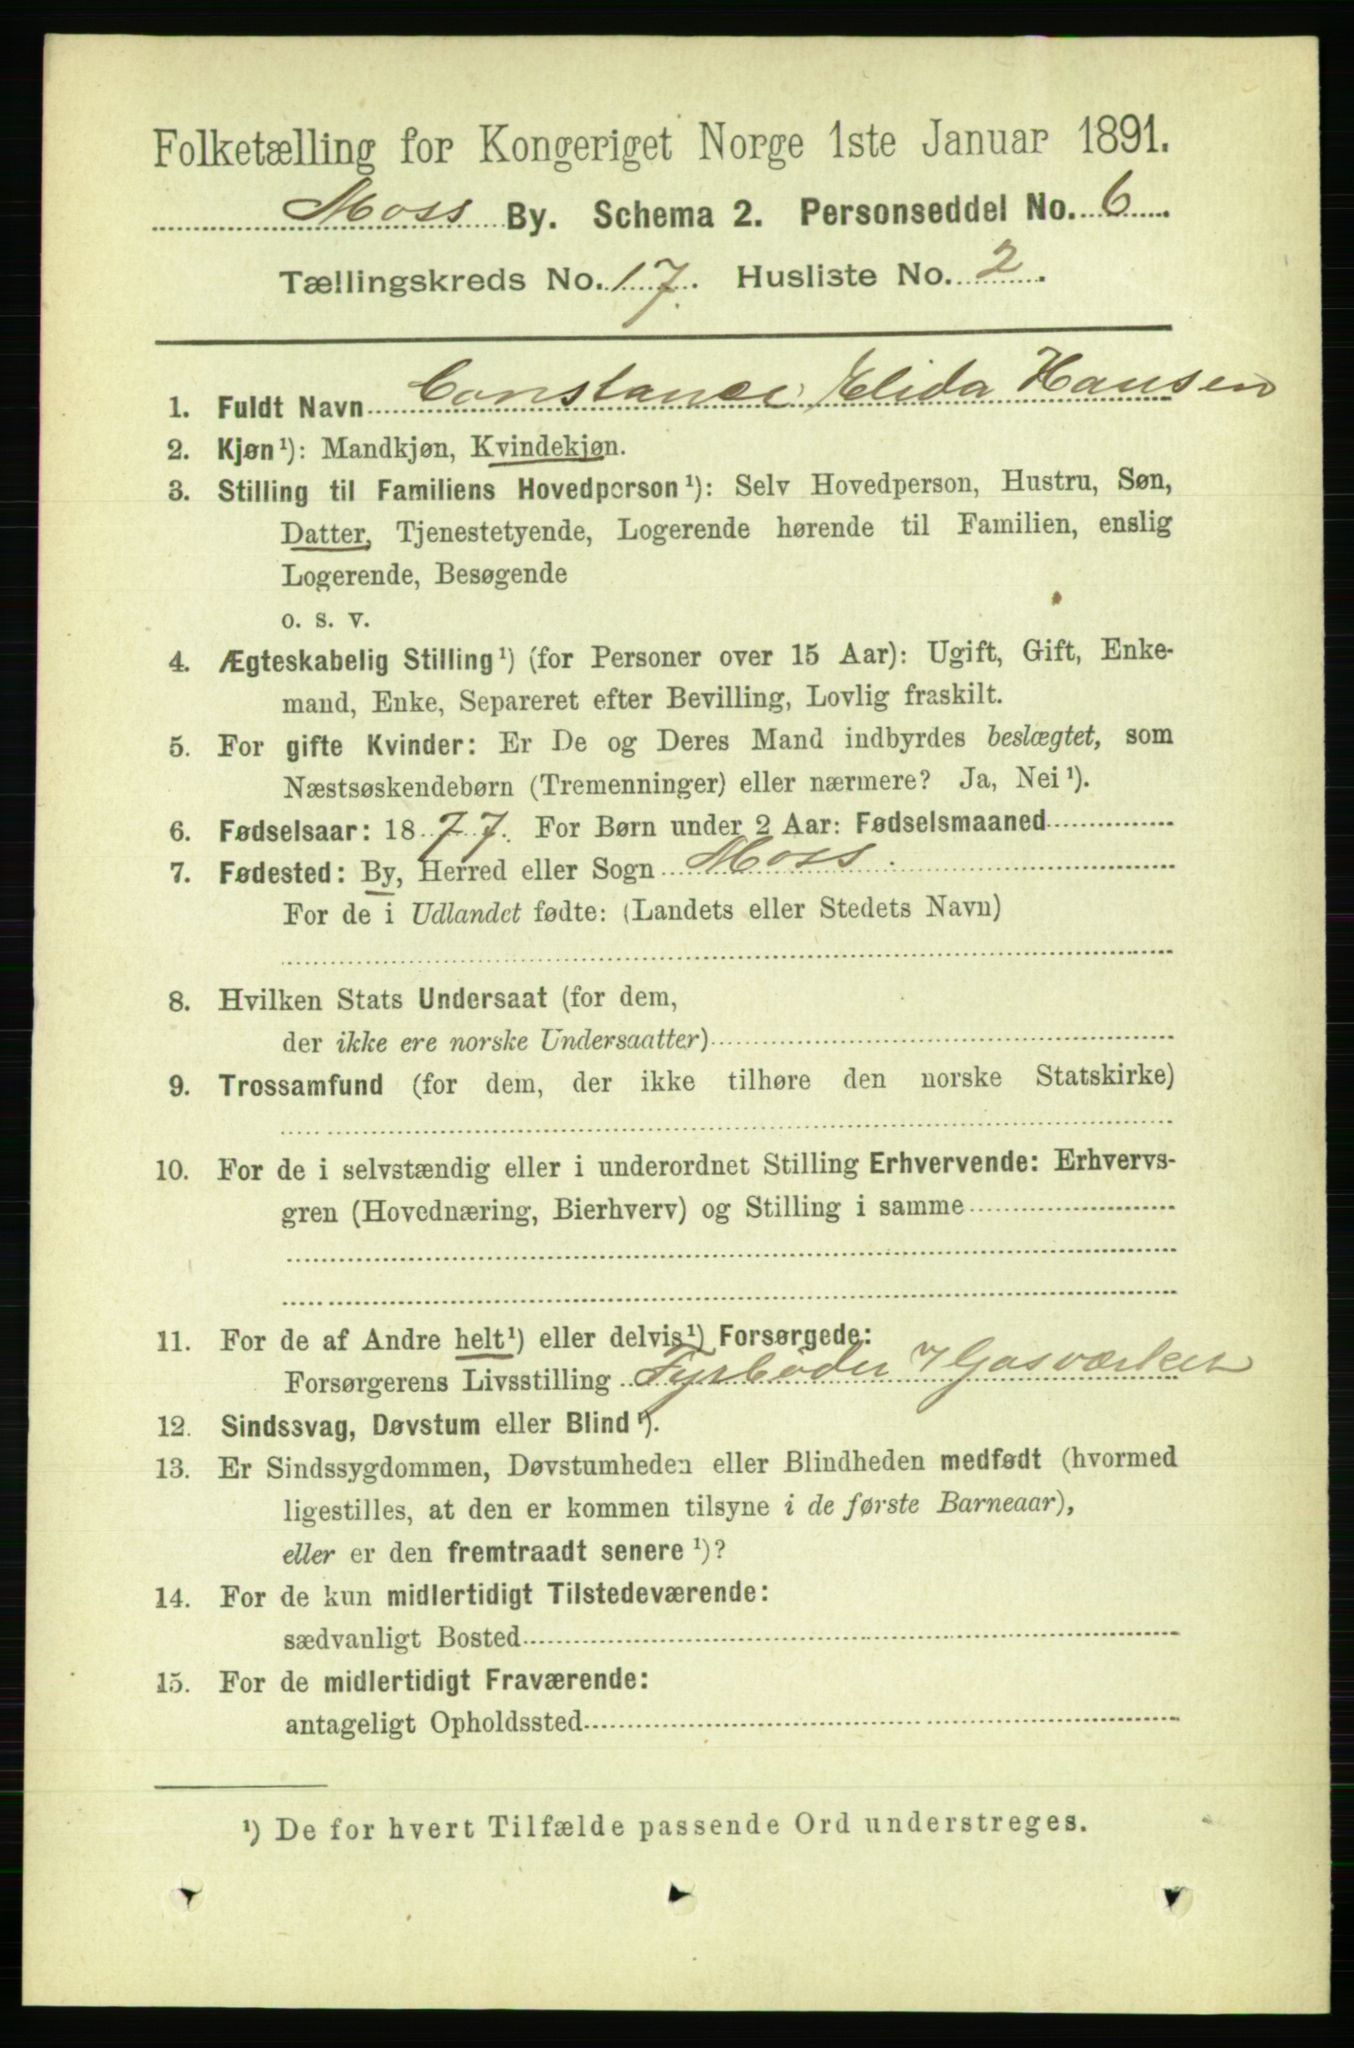 Folketælling for Kongeriget Norge 1ste Januar 1891.
Moss By. Schema 2. Personseddel No. 6.
Tællingskreds No. 17. Husliste No. 2.
1. Fuldt Navn Constance Elida Hansen
2. Kjøn¹): Mandkjøn, Kvindekjøn.
3. Stilling til Familiens Hovedperson¹): Selv Hovedperson, Hustru, Søn,
Datter, Tjenestetyende, Logerende hørende til Familien, enslig
Logerende, Besøgende
o. s. v.
4. Ægteskabelig Stilling¹) (for Personer over 15 Aar): Ugift, Gift, Enke-
mand, Enke, Separeret efter Bevilling, Lovlig fraskilt.
5. For gifte Kvinder: Er De og Deres Mand indbyrdes beslægtet, som
Næstsøskendebørn (Tremenninger) eller nærmere? Ja, Nei¹).
6. Fødselsaar: 1877. For Børn under 2 Aar: Fødselsmaaned
7. Fødested: By, Herred eller Sogn Moss.
For de i Udlandet fødte: (Landets eller Stedets Navn)
8. Hvilken Stats Undersaat (for dem,
der ikke ere norske Undersaatter)
9. Trossamfund (for dem, der ikke tilhøre den norske Statskirke)
10. For de i selvstændig eller i underordnet Stilling Erhvervende: Erhvervs-
gren (Hovednæring, Bierhverv) og Stilling i samme
11. For de af Andre helt¹) eller delvis¹) Forsørgede:
Forsørgerens Livsstilling Fyrbøder i Gasværket
12. Sindssvag, Døvstum eller Blind¹).
13. Er Sindssygdommen, Døvstumheden eller Blindheden medfødt (hvormed
ligestilles, at den er kommen tilsyne i de første Barneaar),
eller er den fremtraadt senere¹)?
14. For de kun midlertidigt Tilstedeværende:
sædvanligt Bosted
15. For de midlertidigt Fraværende:
antageligt Opholdssted
¹) De for hvert Tilfælde passende Ord understreges.